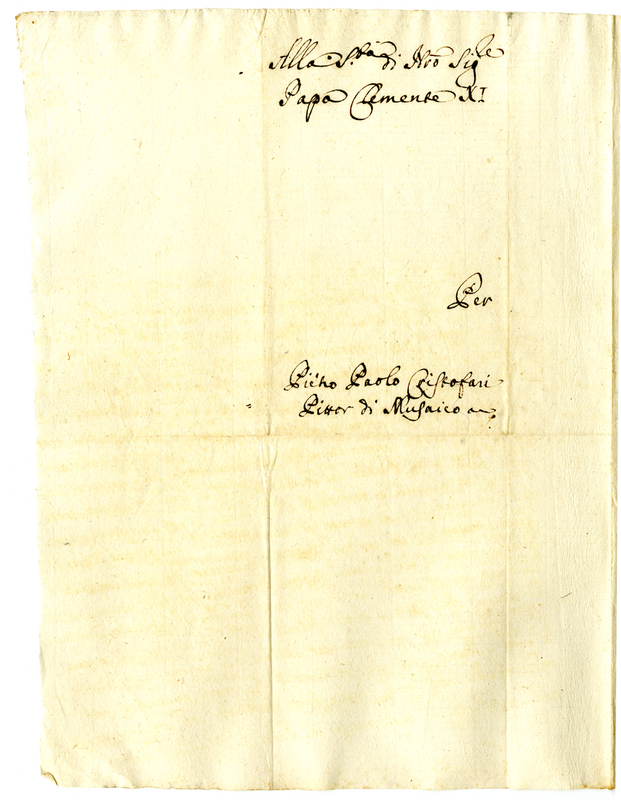 Alla S.tà di Nro Sig.re
Papa Clemente XI
Per
Pietro Paolo Cristofari
Pittor di Musaico